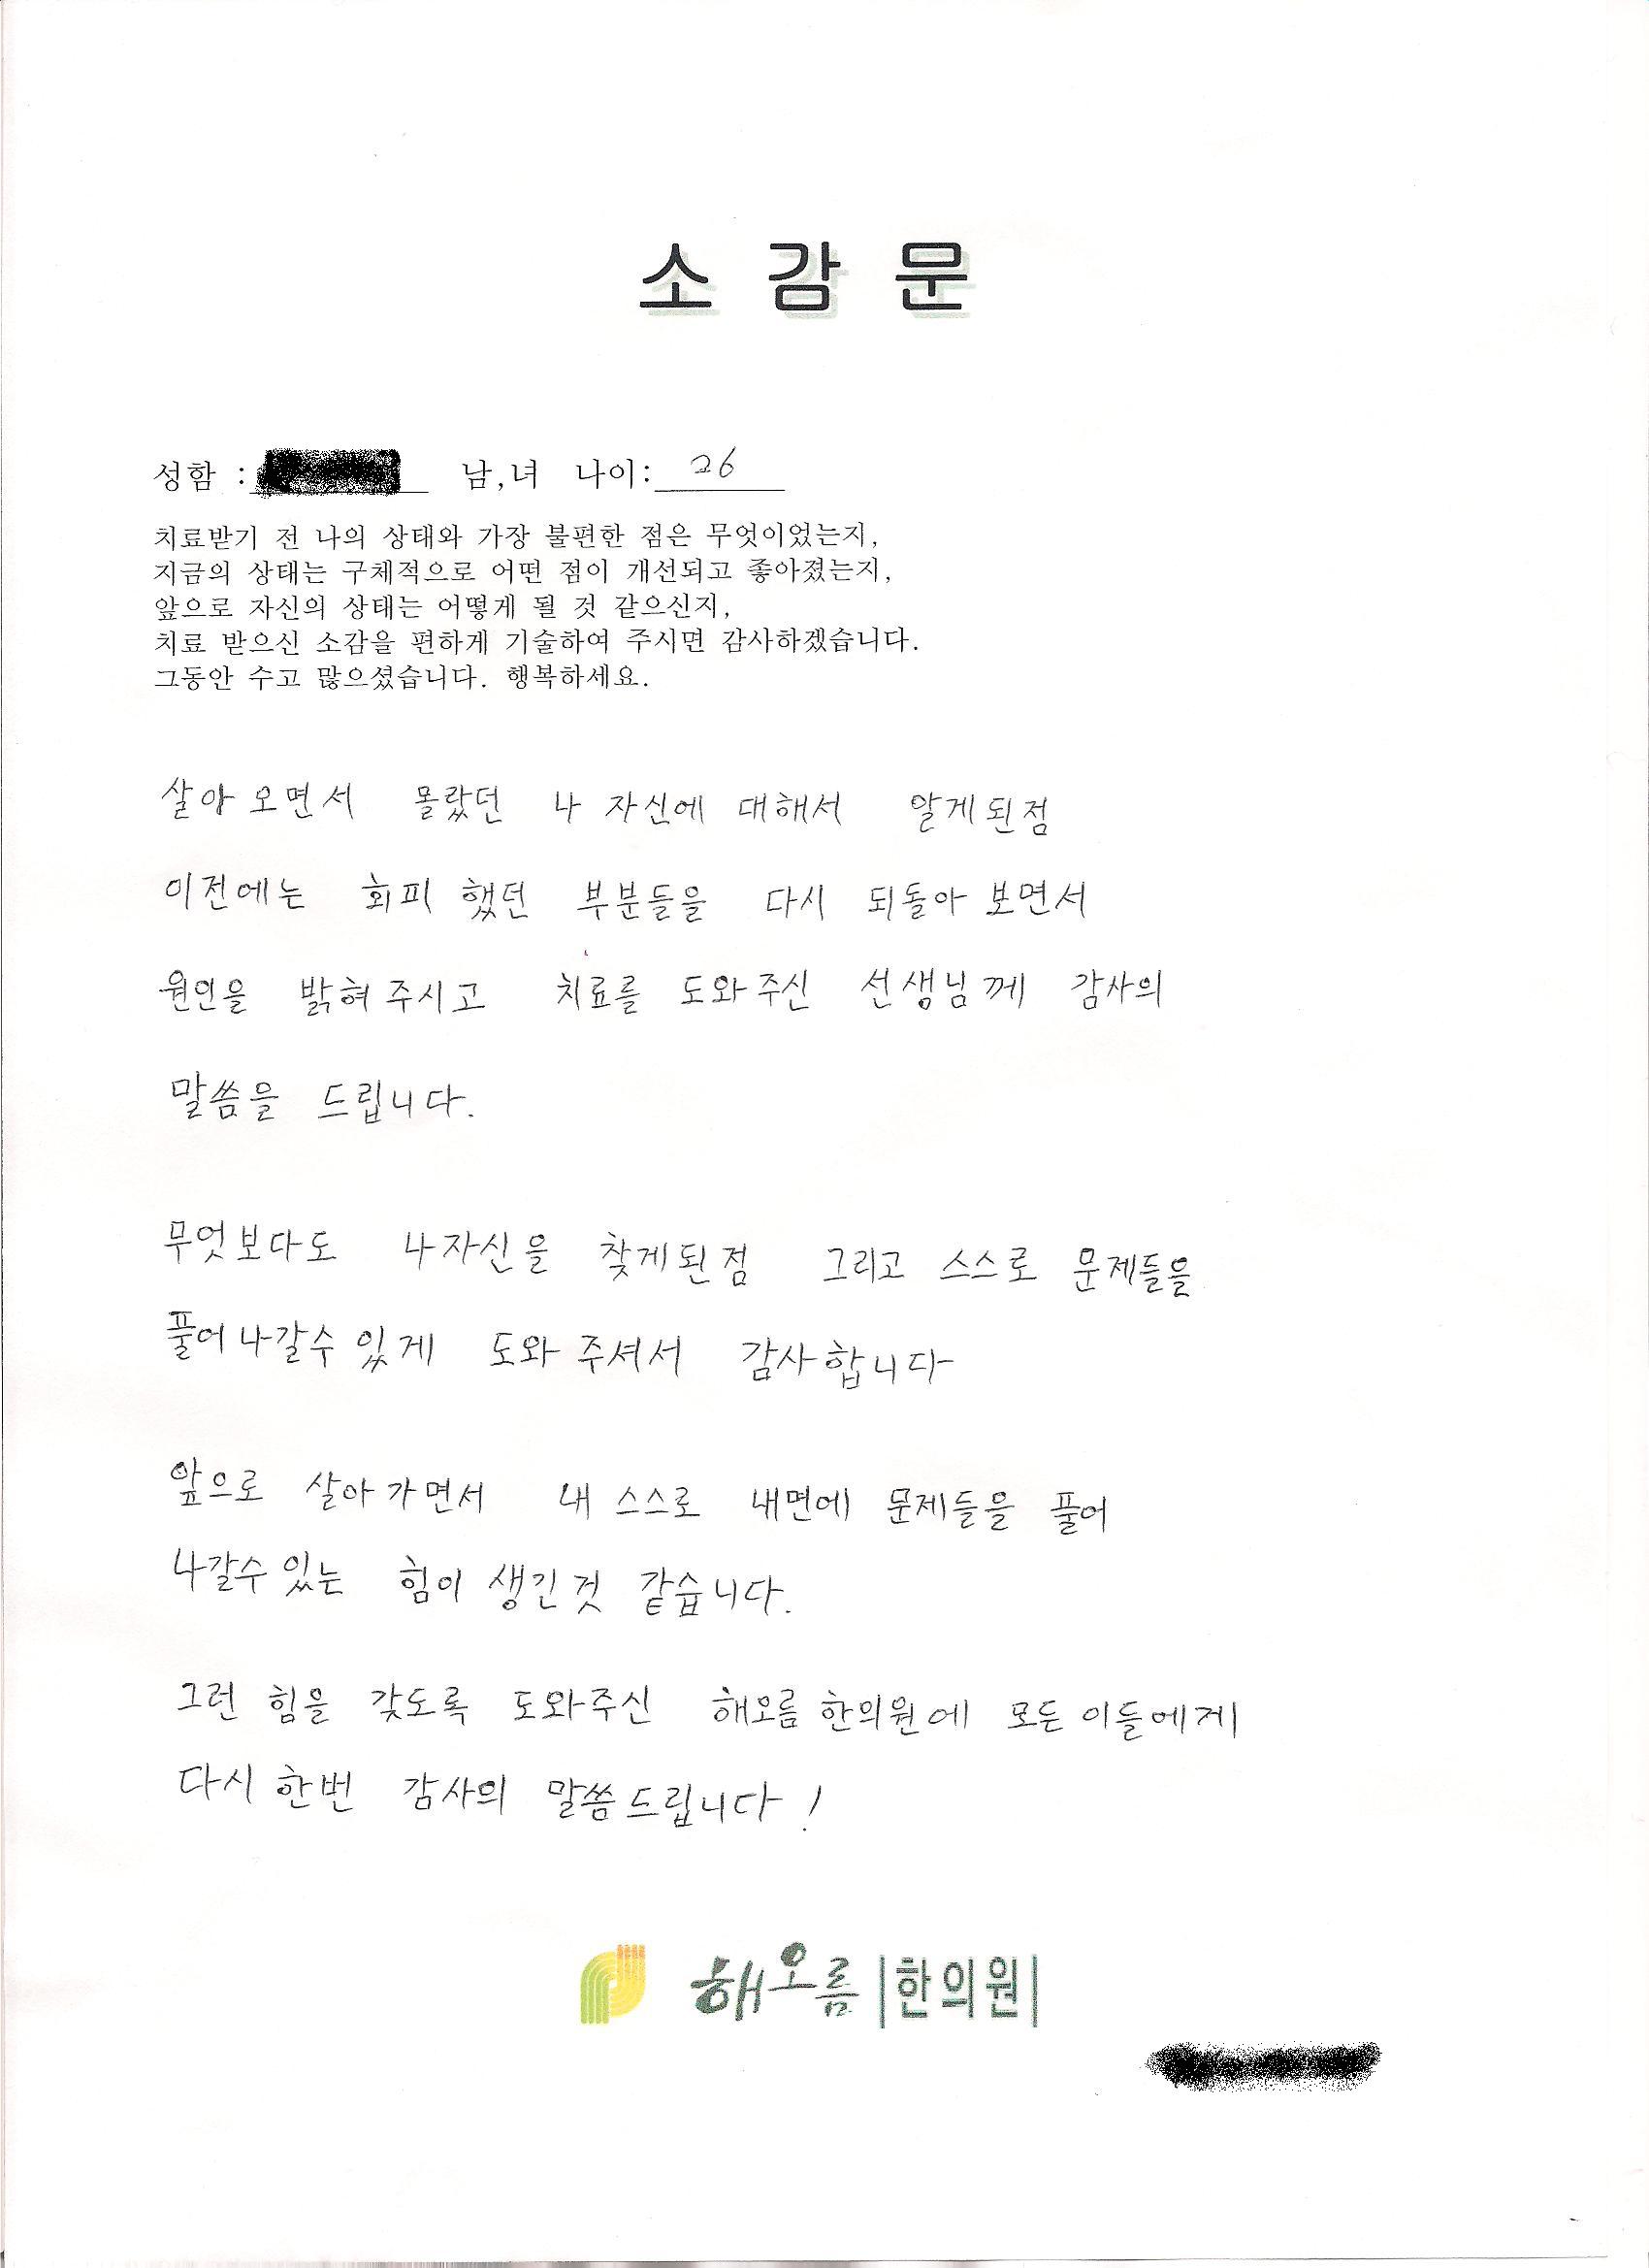 소 감 문
성함 : 남,녀 나이: 26
치료받기 전 나의 상태와 가장 불편한 점은 무엇이었는지,
지금의 상태는 구체적으로 어떤 점이 개선되고 좋아졌는지,
앞으로 자신의 상태는 어떻게 될 것 같으신지,
치료 받으신 소감을 편하게 기술하여 주시면 감사하겠습니다.
그동안 수고 많으셨습니다. 행복하세요.
살아 오면서 몰랐던 나 자신에 대해서 알게된점
이전에는 회피 했던 부분들을 다시 되돌아 보면서
원인을 밝혀 주시고 치료를 도와 주신 선생님께 감사의
말씀을 드립니다.
무엇보다도 나자신을 찾게된점 그리고 스스로 문제들을
풀어나갈수 있게 도와 주셔서 감사합니다
앞으로 살아가면서 내 스스로 내면에 문제들을 풀어
나갈수 있는 힘이 생긴것 같습니다.
그런 힘을 갖도록 도와주신 해오름 한의원에 모든 이들에게
다시 한번 감사의 말씀드립니다!
해오름 |한의원|